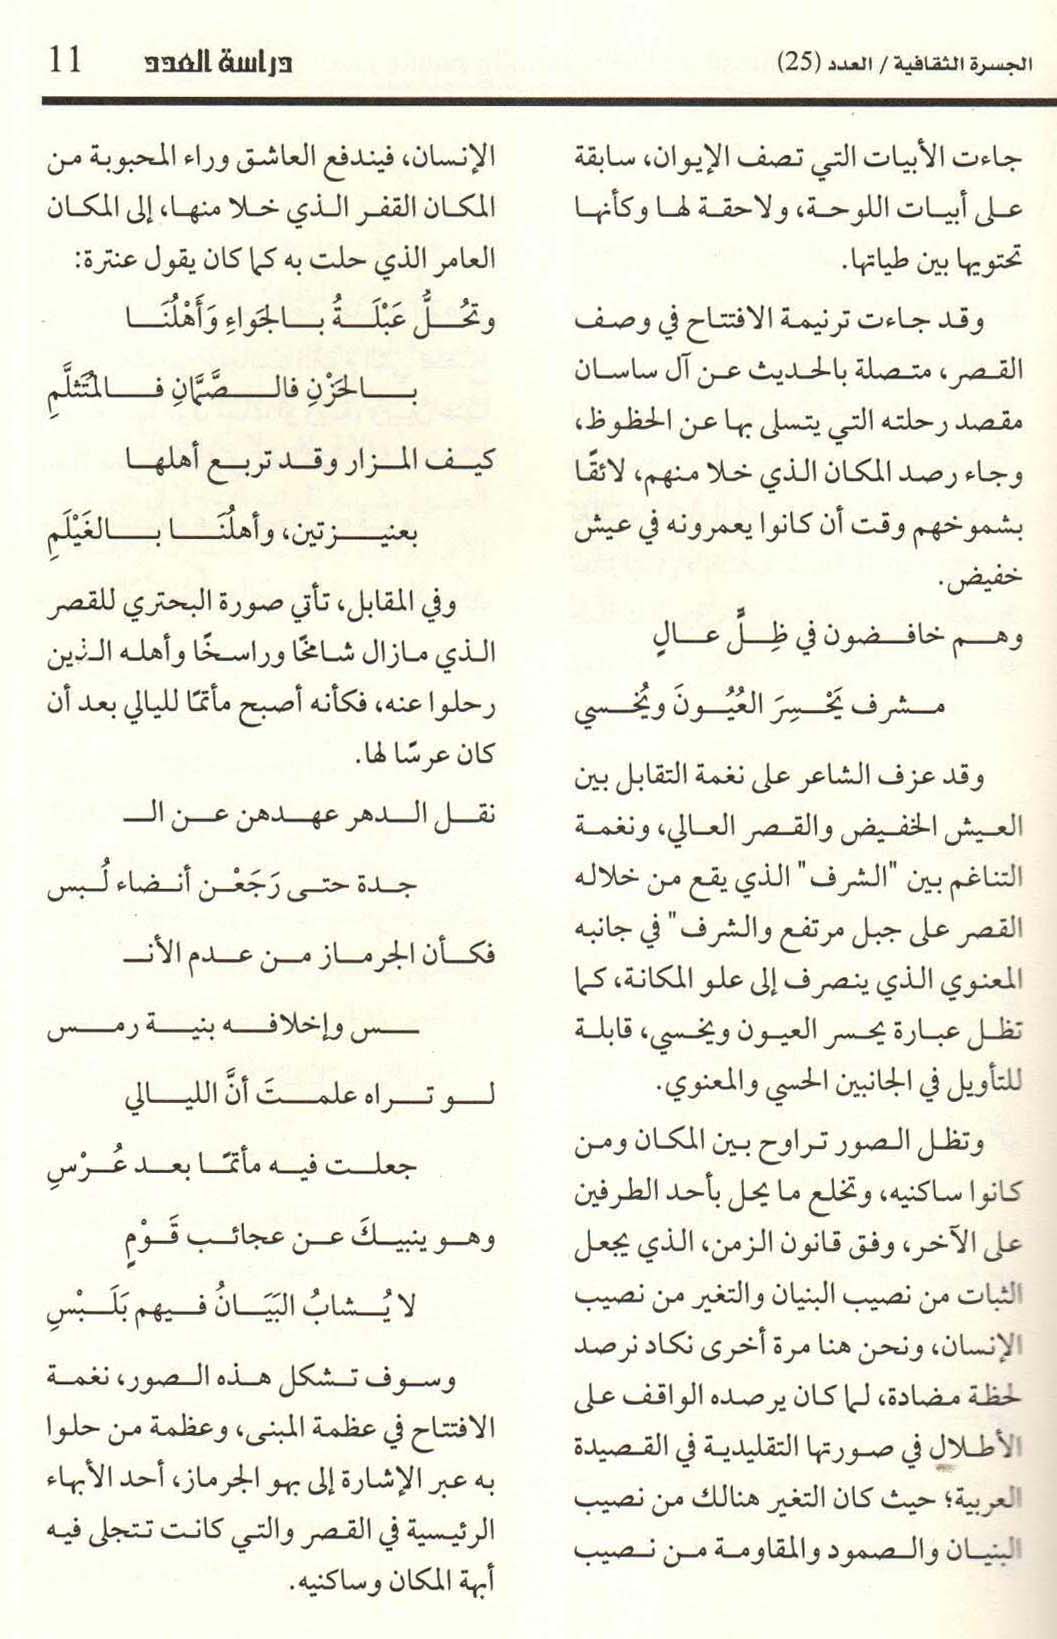 الجسرة الثقافية / العدد (25)
دراسة العدد
11
جاءت الأبيات التي تصف الإيوان، سابقة
على أبيات اللوحة، ولاحقة لها وكأنها
تحتويها بين طياتها.
وقد جاءت ترنيمة الافتتاح في وصف
القصر، متصلة بالحديث عن آل ساسان
مقصد رحلته التي يتسلى بها عن الحظوظ،
وجاء رصد المكان الذي خلا منهم، لائقًا
بشموخهم وقت أن كانوا يعمرونه في عيش
خفيض.
وهم خافضون في ظِلٍّ عالٍ
مشرف يَحْسِرَ العُيُونَ ويُخسي
وقد عزف الشاعر على نغمة التقابل بين
العيش الخفيض والقصر العالي، ونغمة
التناغم بين "الشرف" الذي يقع من خلاله
القصر على جبل مرتفع والشرف" في جانبه
المعنوي الذي ينصرف إلى علو المكانة، كما
تظل عبارة يحسر العيون ويخسي، قابلة
للتأويل في الجانبين الحسي والمعنوي.
وتظل الصور تراوح بين المكان ومن
كانوا ساكنيه، وتخلع ما يحل بأحد الطرفين
على الآخر، وفق قانون الزمن، الذي يجعل
الثبات من نصيب البنيان والتغير من نصيب
الإنسان، ونحن هنا مرة أخرى نكاد نرصد
لحظة مضادة، لما كان يرصده الواقف على
الأطلال في صورتها التقليدية في القصيدة
العربية؛ حيث كان التغير هنالك من نصيب
البنيان والصمود والمقاومة من نصيب
الإنسان، فيندفع العاشق وراء المحبوبة من
المكان القفر الذي خلا منها، إلى المكان
العامر الذي حلت به كما كان يقول عنترة:
وتحُلُّ عَبْلَةُ بالجَواءِ وَأَهْلُنَا
بالحَزْنِ فالصَّمَّانِ فالمُتَثلَّمِ
كيف المزار وقد تربع أهلها
بعنيزتين، وأهلُنَا بالغَيْلَمِ
وفي المقابل، تأتي صورة البحتري للقصر
الذي مازال شامخًا وراسخًا وأهله الذين
رحلوا عنه، فكأنه أصبح مأتمًا لليالي بعد أن
كان عرسًا لها.
نقل الدهر عهدهن عن الـ
جدة حتى رَجَعْن أنضاء لُبس
فكأن الجرماز من عدم الأنـ
ـس وإخلافه بنية رمس
لو تراه علمتَ أنَّ الليالي
جعلت فيه مأتمًا بعد عُرْسِ
وهو ينبيكَ عن عجائب قَوْمٍ
لا يُشابُ البَيَانُ فيهم بَلَبْسِ
وسوف تشكل هذه الصور، نغمة
الافتتاح في عظمة المبنى، وعظمة من حلوا
به عبر الإشارة إلى بهو الجرماز، أحد الأبهاء
الرئيسية في القصر والتي كانت تتجلى فيه
أبهة المكان وساكنيه.